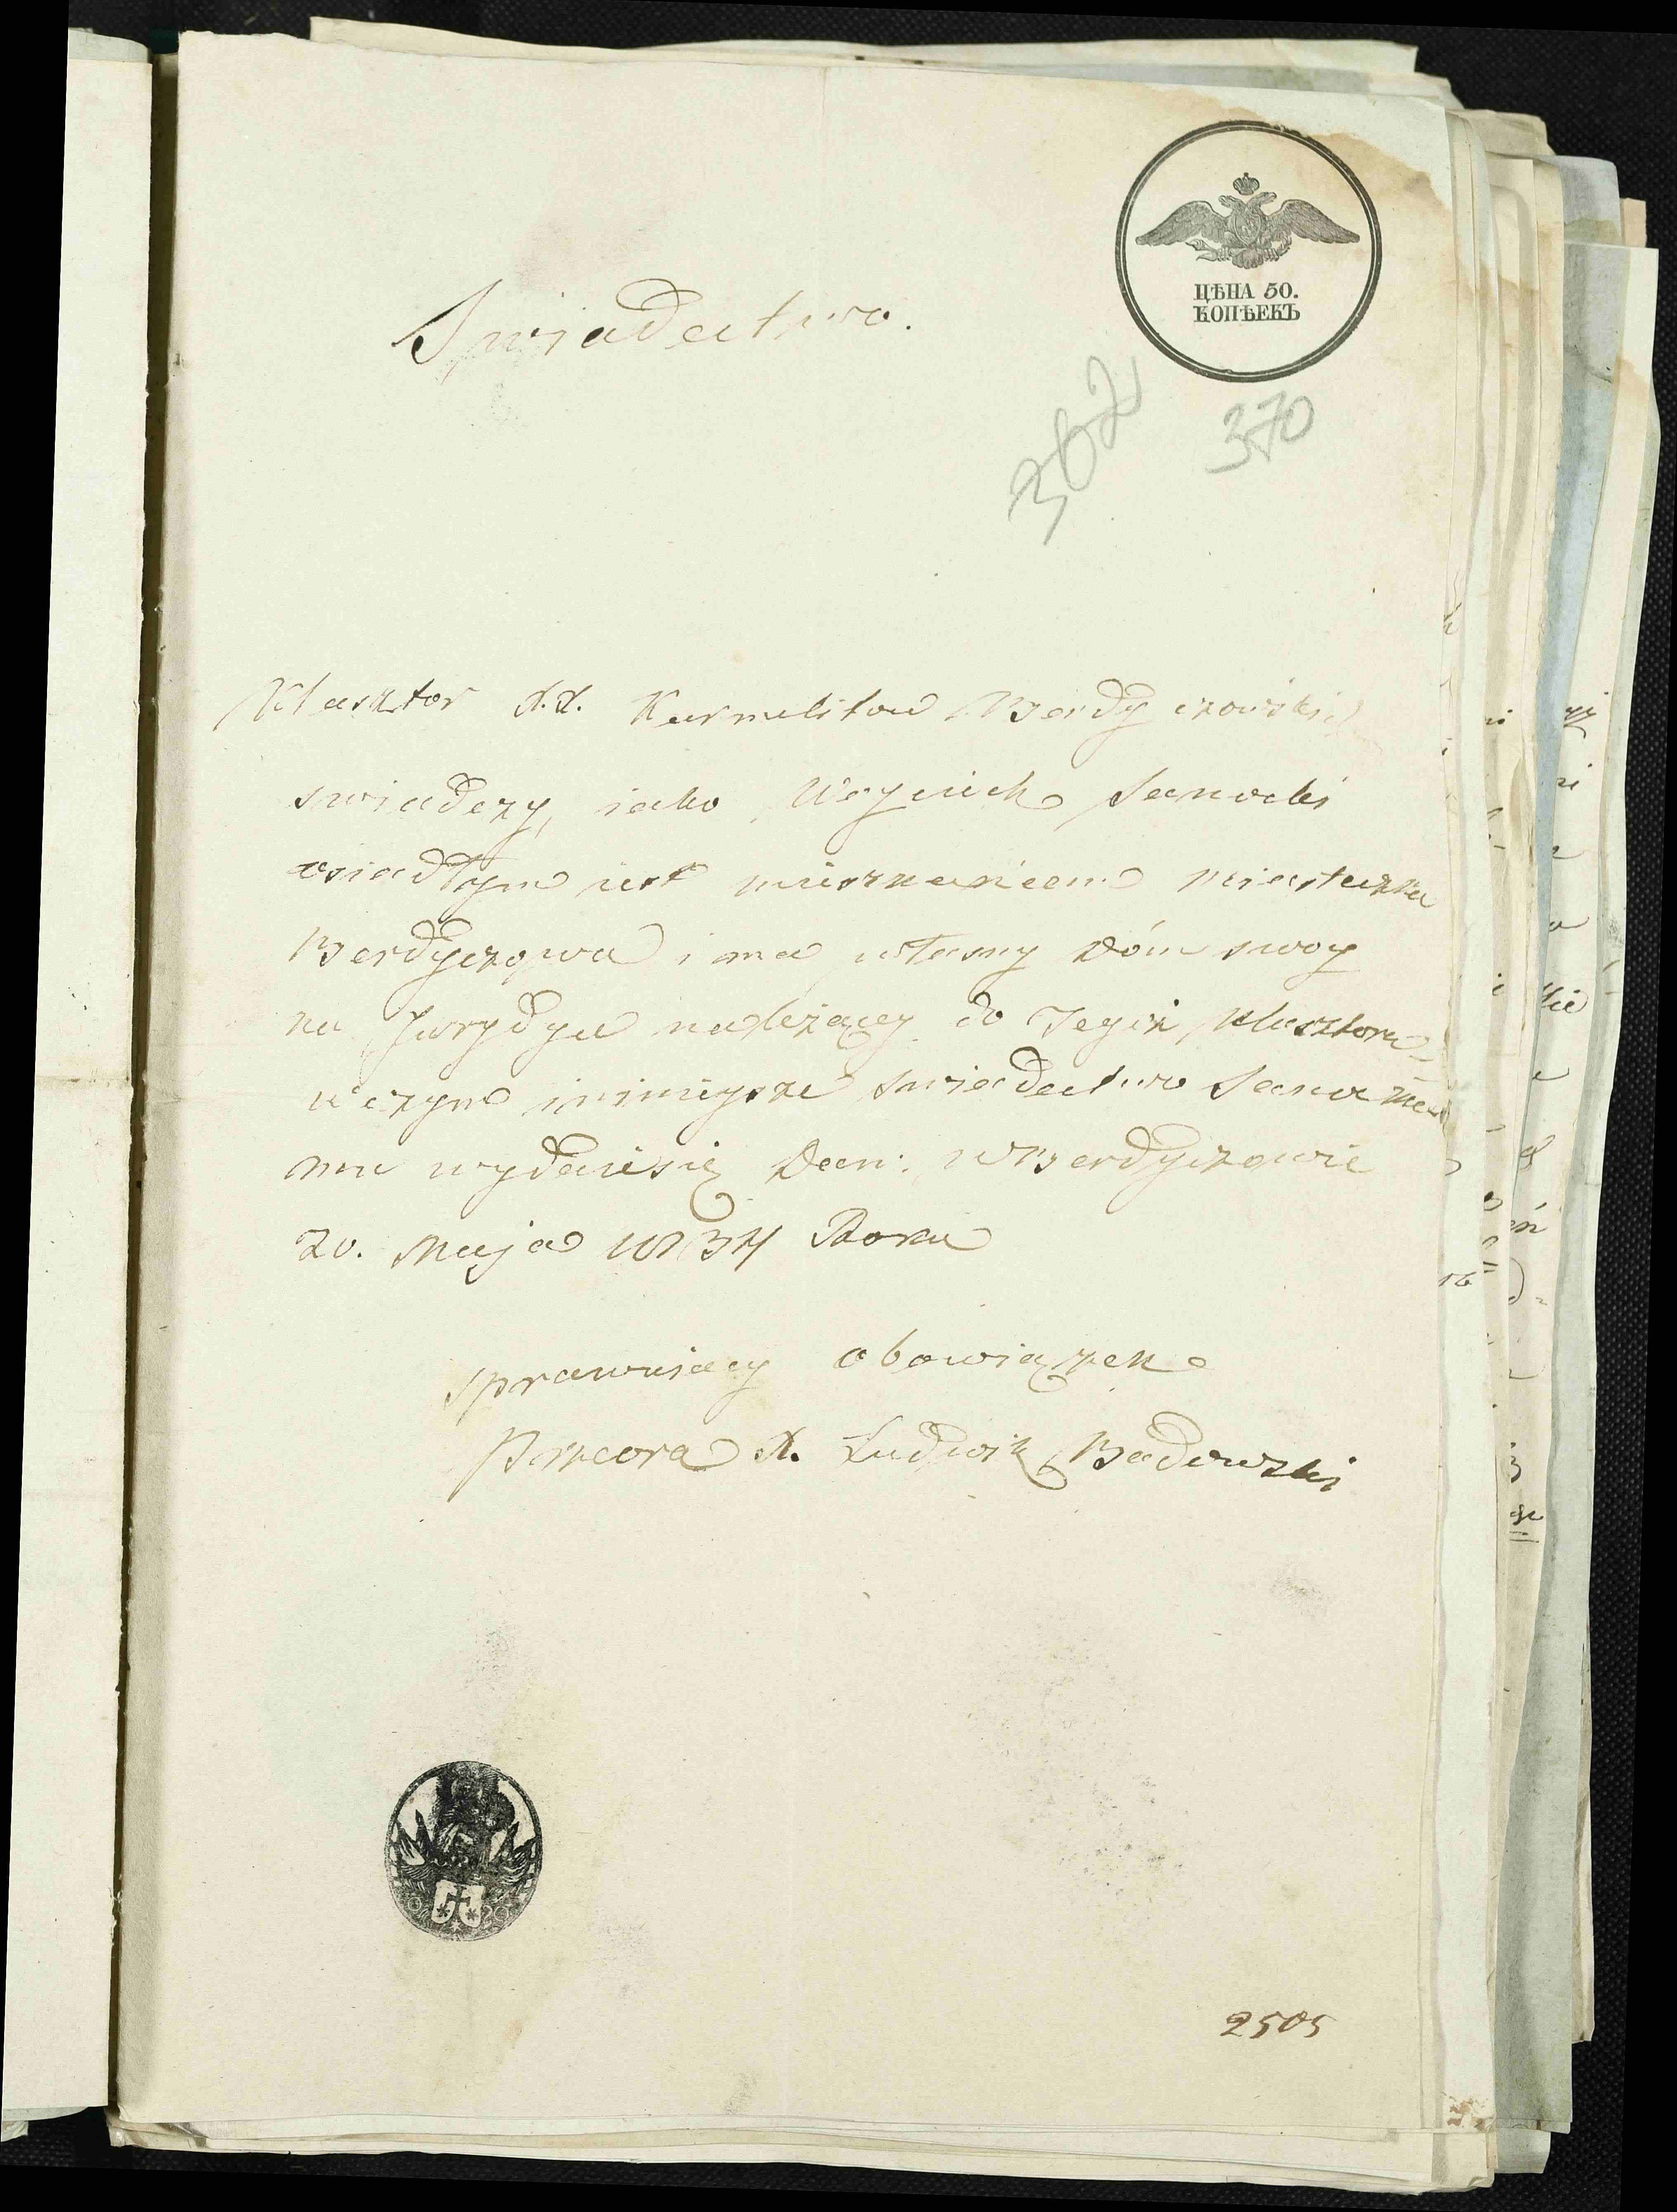 ЦѢНА 50.
КОПѢЕКЪ
Swiadectwo.
362
370
Klasztor X.X. Karmelitow Berdyczowskich
swiadczy, iako Woyciech Sanocki
osiadłym iest mieszkańcem miasteczka
Berdyczowa i ma własny Dóm swoy
na Jurydyce należącey do Tegiż Klasztoru
w czym ninieysze swiadectwo
mu wydaiesię Dan: w Berdyczowie
20. Maja 1834 Roku
sprawuiący obowiązek
Przeora X. Ludwik Badowski
2505